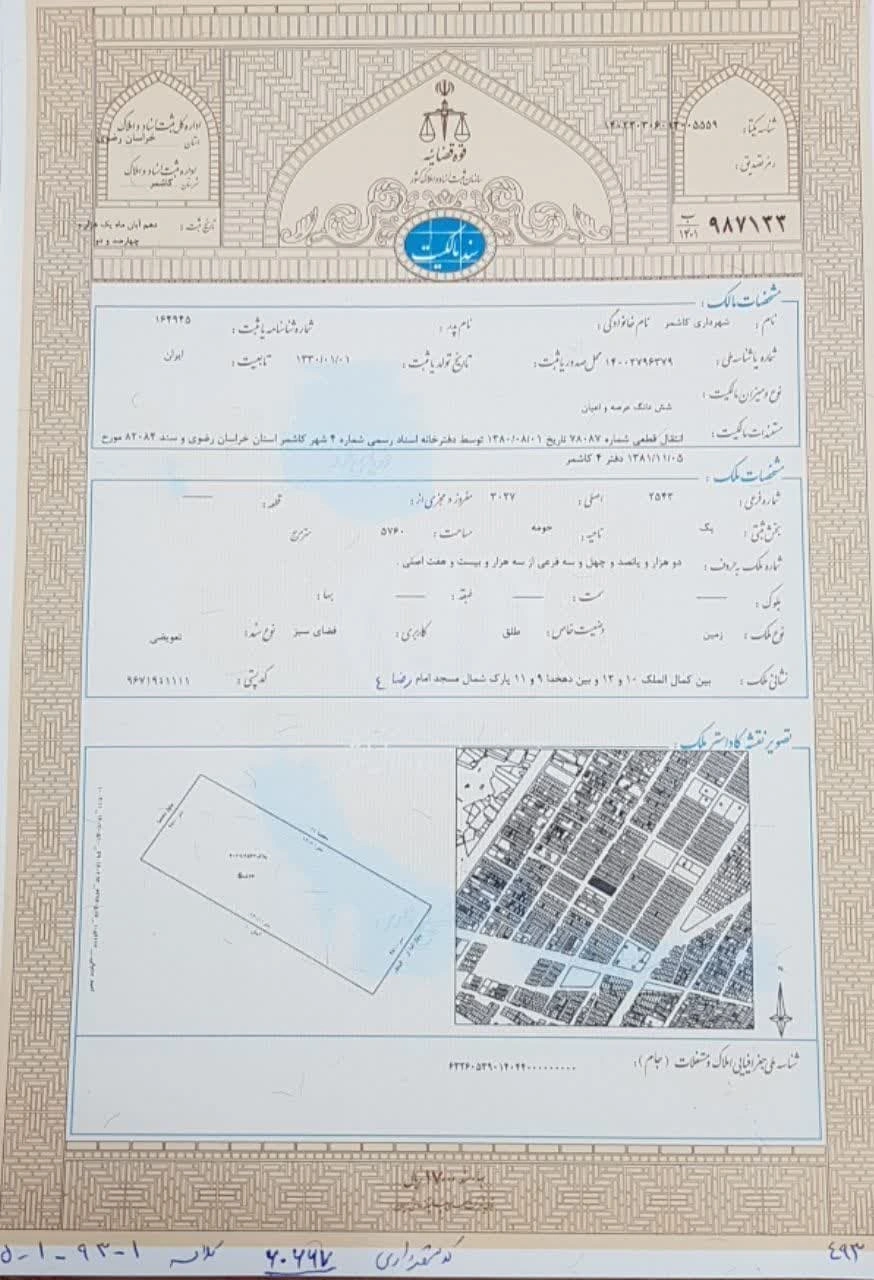 قوه قضائیه
سازمان ثبت اسناد و املاک کشور
سند مالکیت
اداره کل ثبت اسناد و املاک
استان خراسان رضوی
اداره ثبت اسناد و املاک
شهرستان کاشمر
تاریخ ثبت : دهم آبان ماه یک هزار و
چهارصد و دو
شناسه یکتا :
رمز تصدیق :
۹۸۷۱۳۳ ب ۱۴۰۱
مشخصات مالک :
نام : شهرداری کاشمر نام خانوادگی : نام پدر : شماره شناسنامه یا ثبت : ۱۶۴۹۴۵
شماره یا شناسه ملی : ۱۴۰۰۲۷۹۶۳۷۹ محل صدور یا ثبت : تاریخ تولد یا ثبت : ۱۳۳۰/۰۱/۰۱ تابعیت : ایران
نوع و میزان مالکیت :
شش دانگ عرصه و اعیان
مستندات مالکیت : انتقال قطعی شماره ۷۸۰۸۷ تاریخ ۱۳۸۰/۰۸/۰۱ توسط دفترخانه اسناد رسمی شماره ۴ شهر کاشمر استان خراسان رضوی و سند ۸۲۰۸۴ مورخ
۱۳۸۱/۱۱/۰۵ دفتر ۴ کاشمر
مشخصات ملک :
شماره فرعی : ۲۵۴۳ اصلی : ۳۰۲۷ مفروز و مجزی از : قطعه : ——
بخش ثبتی : یک ناحیه : حومه مساحت : ۵۷۶۰ مترمربع
شماره ملک به حروف : دو هزار و پانصد و چهل و سه فرعی از سه هزار و بیست و هفت اصلی .
بلوک : —— سمت : —— طبقه : —— بها :
نوع ملک : زمین وضعیت خاص : طلق کاربری : فضای سبز نوع سند : تعویضی
نشانی ملک : بین کمال الملک ۱۰ و ۱۲ و بین دهخدا ۹ و ۱۱ پارک شمال مسجد امام رضا ع کدپستی : ۹۶۷۱۹۴۱۱۱۱
تصویر نقشه کاداستر ملک :
شناسه ملی جغرافیایی املاک و مستغلات (جام) :
۴۹۳